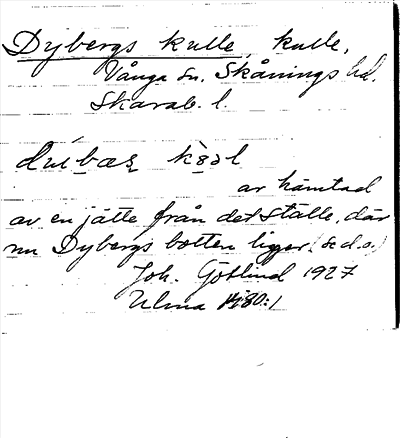 Dybergs kulle, kulle,
Vånga sn. Skånings hd.
Skarab. l.
är hämtad
av en jätte från det ställe, där
nu Dybergs botten ligger (se d.o.)
Joh. Götlind 1927
Ulma 180:1